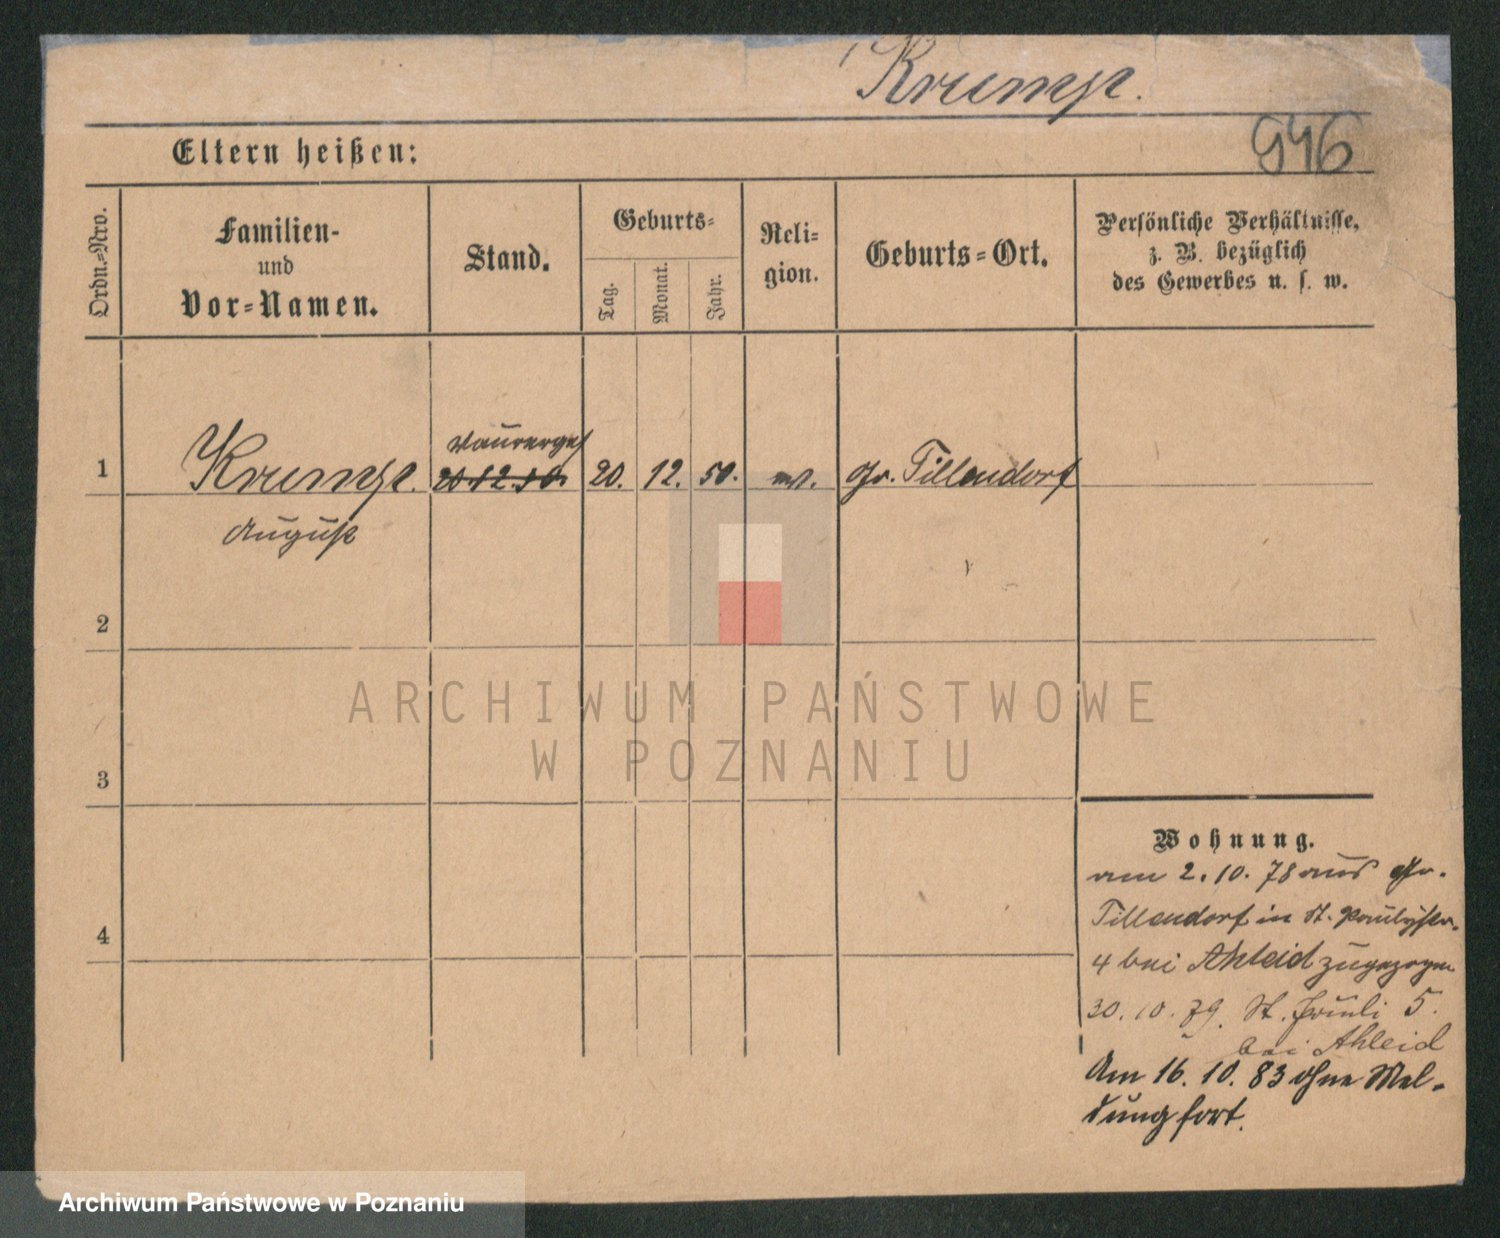 Krumpe.
946
Eltern heißen:
Ordn.-Nro.
Familien-
und
Vor-Namen.
Stand.
Geburts-
Tag.
Monat.
Jahr.
Reli-
gion.
Geburts-Ort.
Persönliche Verhältnisse,
z. B. bezüglich
des Gewerbes u. s. w.
Maurerges
1 Krumpe. 20.12.50. 20. 12. 50. ev. Gr. Tillendorf
August
2
3
4
Wohnung.
am 2.10.78 aus Gr.
Tillendorf in St. Paulistr.
4 bei Ahleid zugezogen
30.10.79. St. Pauli 5.
bei Ahleid
Am 16.10.83 ohne Mel-
dung fort.
ARCHIWUM PAŃSTWOWE
W POZNANIU
Archiwum Państwowe w Poznaniu